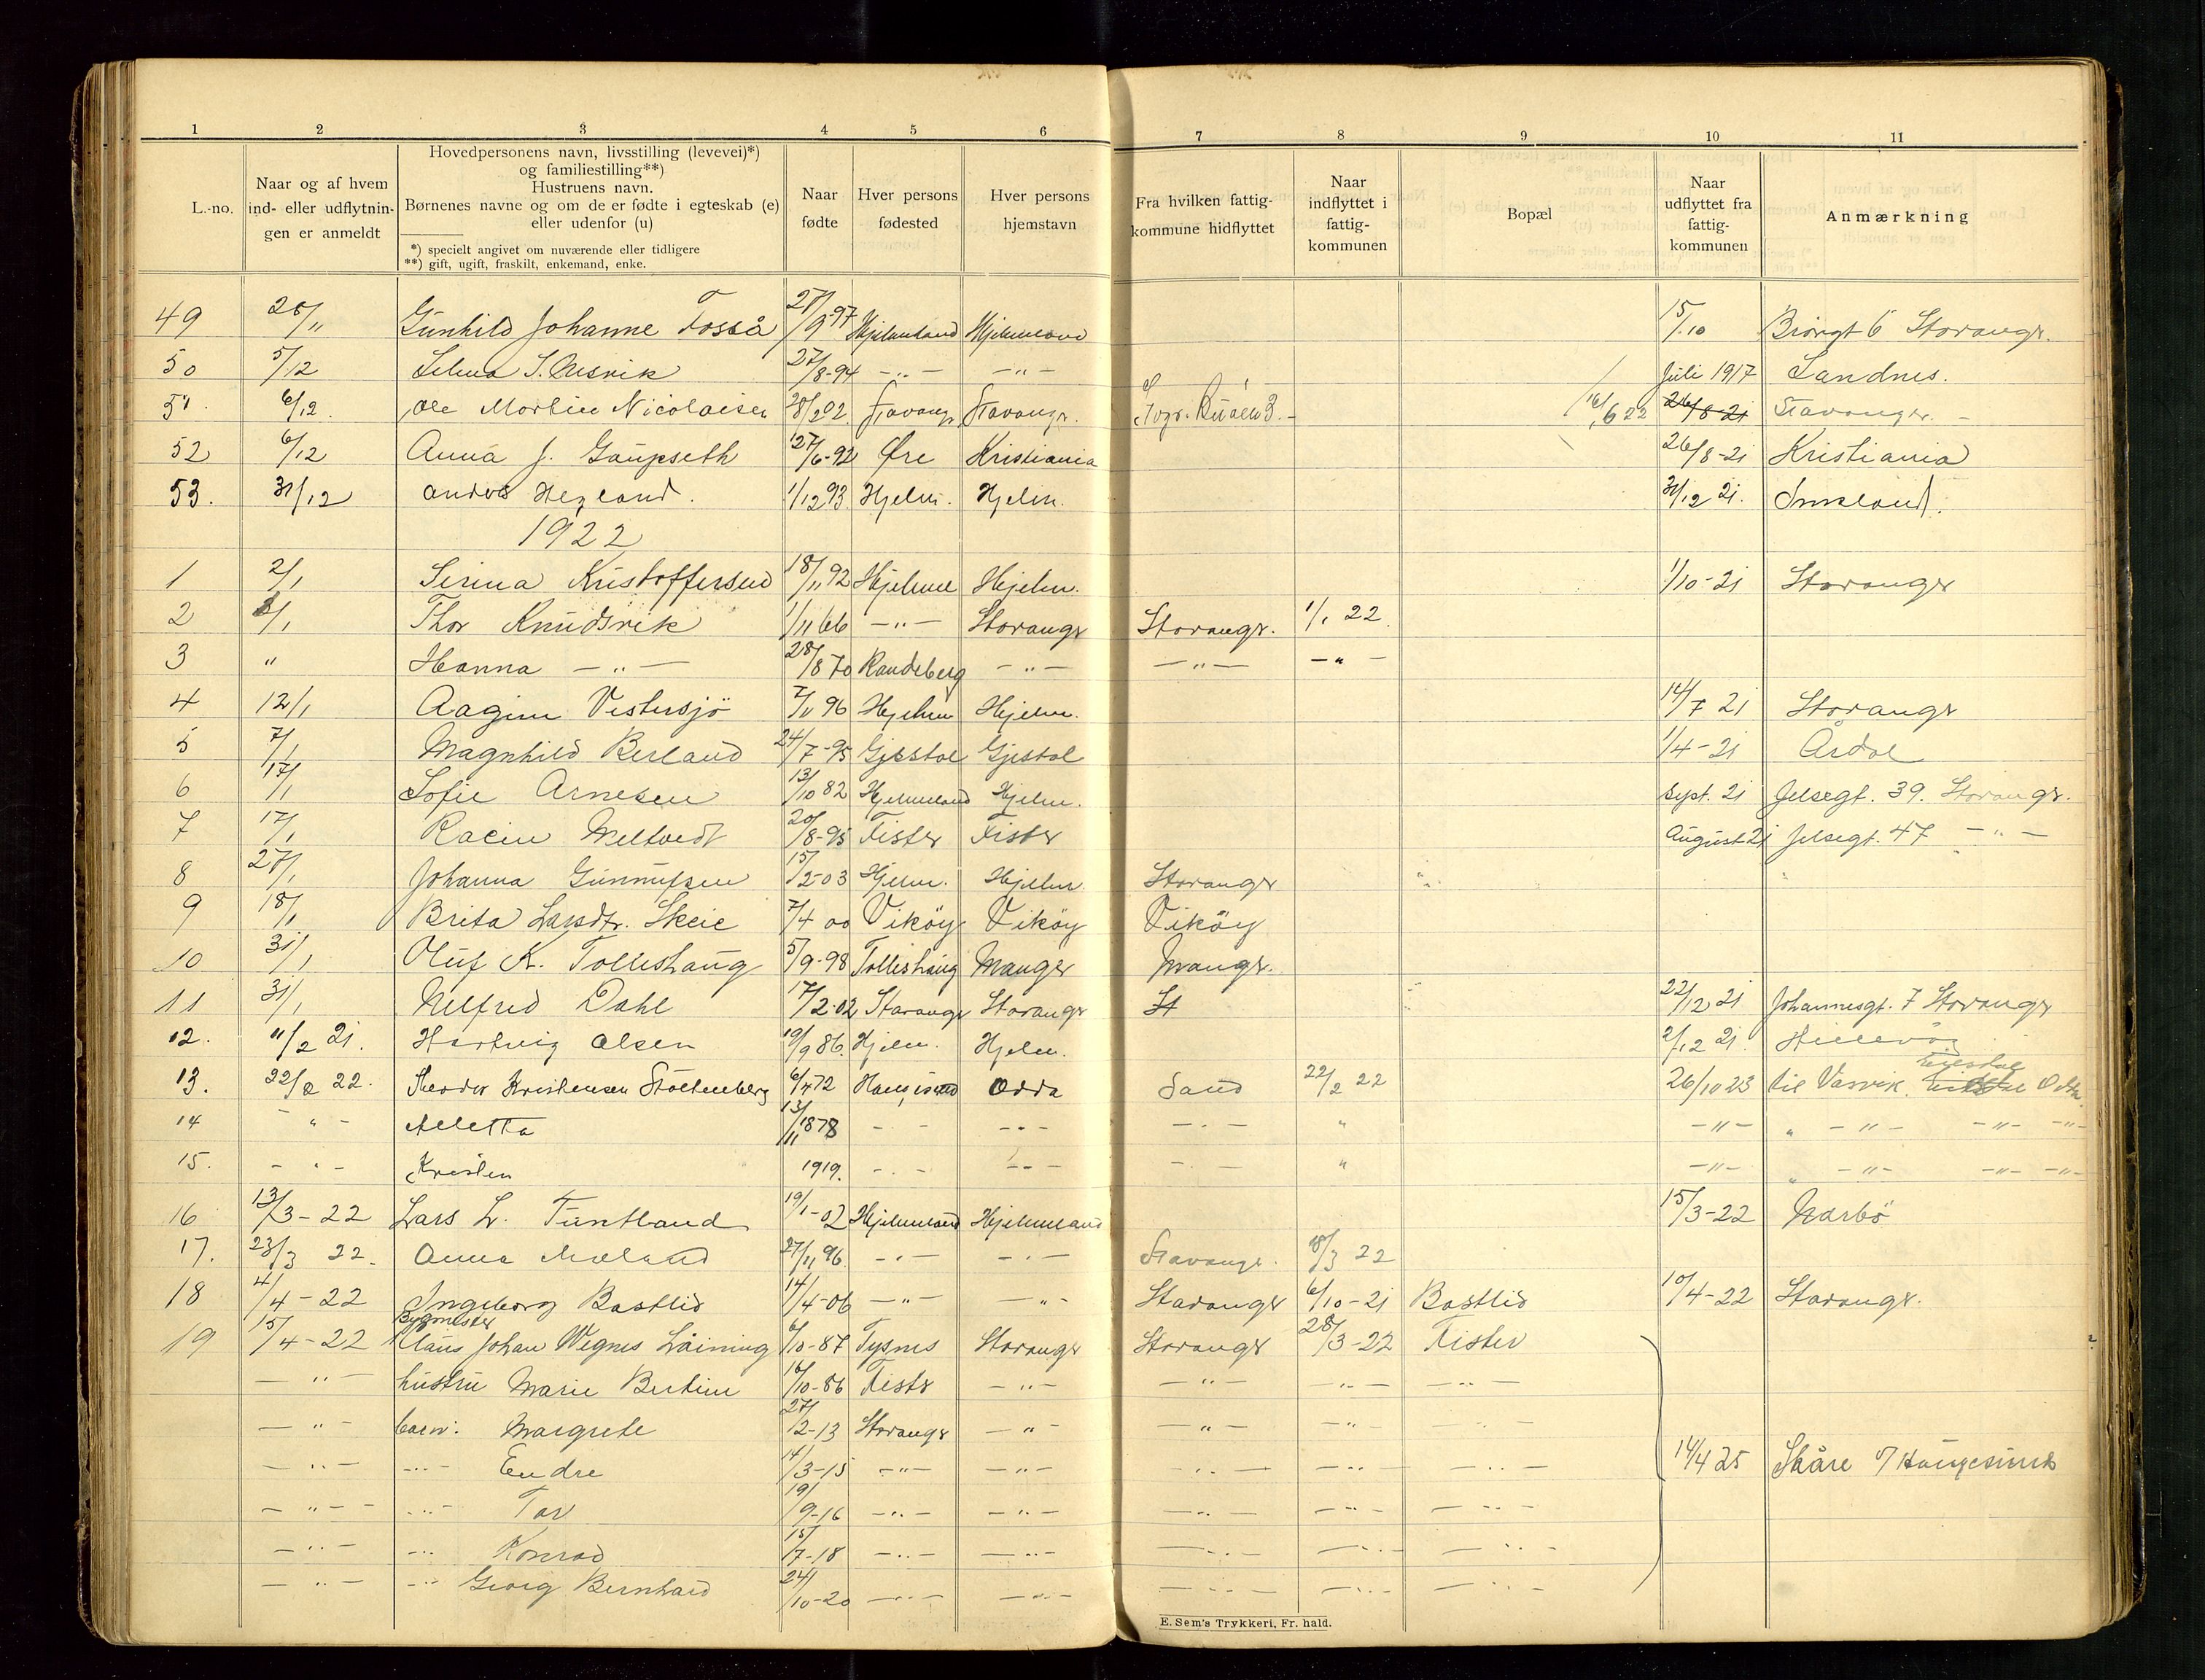 1 2 3 4 5 6 7 8 9 10 11
L.-no.
Naar og af hvem
ind- eller udflytnin-
gen er anmeldt
Hovedpersonens navn, livsstilling (levevei)*)
og familiestilling**)
Hustruens navn.
Børnenes navne og om de er fødte i egteskab (e)
eller udenfor (u)
*) specielt angivet om nuværende eller tidligere
**) gift, ugift, fraskilt, enkemand, enke.
Naar
fødte
Hver persons
fødested
Hver persons
hjemstavn
Fra hvilken fattig-
kommune hidflyttet
Naar
indflyttet i
fattig-
kommunen
Bopæl
Naar
udflyttet fra
fattig-
kommunen
Anmærkning
49 28/11 Gunhild Johanne Fosså 28/9 97 Hjelmeland Hjelmeland 15/10 6 Stavanger.
50 5/12 Selma S. 27/8-94 -"- -"- Juli 1917 Sandnes.
51. 6/12. Ole Martin Nicolaisen 28/2 02. Stavangr. Stavanger. 16/6 22 26/8-21 Stavanger. -
52 6/12 Anna J. Gaupseth 27/6-92 Øre Kristiania 26/8-21 Kristiania
53. 31/12 Anders Hegland. 1/12 93. Hjelm. Hjelm. 31/12 21.
1922
1 2/1 Serina Kristoffersen 18/11 92 Hjelmel Hjelm. 1/10-21 Stavanger
2 3/1 Thor Knudsvik 1/11 66 -"- Stavanger Stavangr. 1/1 22.
3 " Hanna -"- 28/8 70 Randeberg -"- -"- -"-
4 12/1 Aagim Vestersjö 7/11 96 Hjelm Hjelm. 14/7 21 Stavanger
5 7/1 Magnhild Berland 24/7-95 Gjestal Gjestal 1/4-21 Årdal
6 17/1 Sofie Arnesen 13/10 82 Hjelmeland Hjelm. Sept. 21 Jelsegt. 39. Stavangr.
7 17/1 Meltvedt 20/8-95 Fister Fister August 21 Jelsegt. 47 -"-
8 27/1 Johanna Gunnufsen 15/2-03 Hjelm. Hjelm. Stavanger
9 18/1 Brita Larsdtr. Skeie 7/4 00 Viköy Viköy Viköy
10 31/1 Oluf K. Tolleshaug 5/9-98 Tolleshaug Manger Mangr.
11 31/1 Melfred Dahl 17/2-02 Stavanger Stavanger St 22/12 21 Johannesgt. 7 Stavanger
12. 11/2 21. Hartvig Olsen 19/9 86. Hjelm. Hjelm. 2/12 21. Hillevåg
13. 22/2 22. Theodor Kristensen Stoltenberg 6/4 72 Haugesund Odda Sand 22/2 22 26/10 23 til Vasvik. Odda.
14 - " - Alletta 13/11 1878 - - -"- -"- " -"- " -"- -"- -"-
15. - " - Kristen 1919. - - -"- -"- " -"- " -"- -"- -"-
16 13/3-22 Lars L. Funtland 19/1-02 Hjelmeland Hjelmeland 15/3-22 Narbö
17. 23/3 22. Anna Mæland 27/11 96. -"- -"- Stavangr. 18/3 22
18 4/4-22 Ingeborg Bastlid 14/4-06 -"- -"- Stavanger 6/10-21 Bastlid 10/4-22 Stavangr.
Bygmester
19 15/4-22 Claus Johan Wegnes Låining 6/10-87 Tysnes Stavanger Stavanger 28/3-22 Fister
-"- hustru Marie Bertine 16/10-86 Fister -"- -"- -"- -"-
-"- barn: Margrete 27/2-13 Stavanger -"- -"- -"- -"-
-"- -"- Endre 14/3-15 -"- -"- -"- -"- -"- 14/4 25 Skåre p/ Haugesund
-"- -"- Tor 19/9-16 -"- -"- -"- -"- -"-
-"- -"- Konrad 15/7-18 -"- -"- -"- -"- -"-
-"- -"- Georg Bernhard 24/10-20 -"- -"- -"- -"- -"-
E. Sem's Trykkeri, Fr. hald.